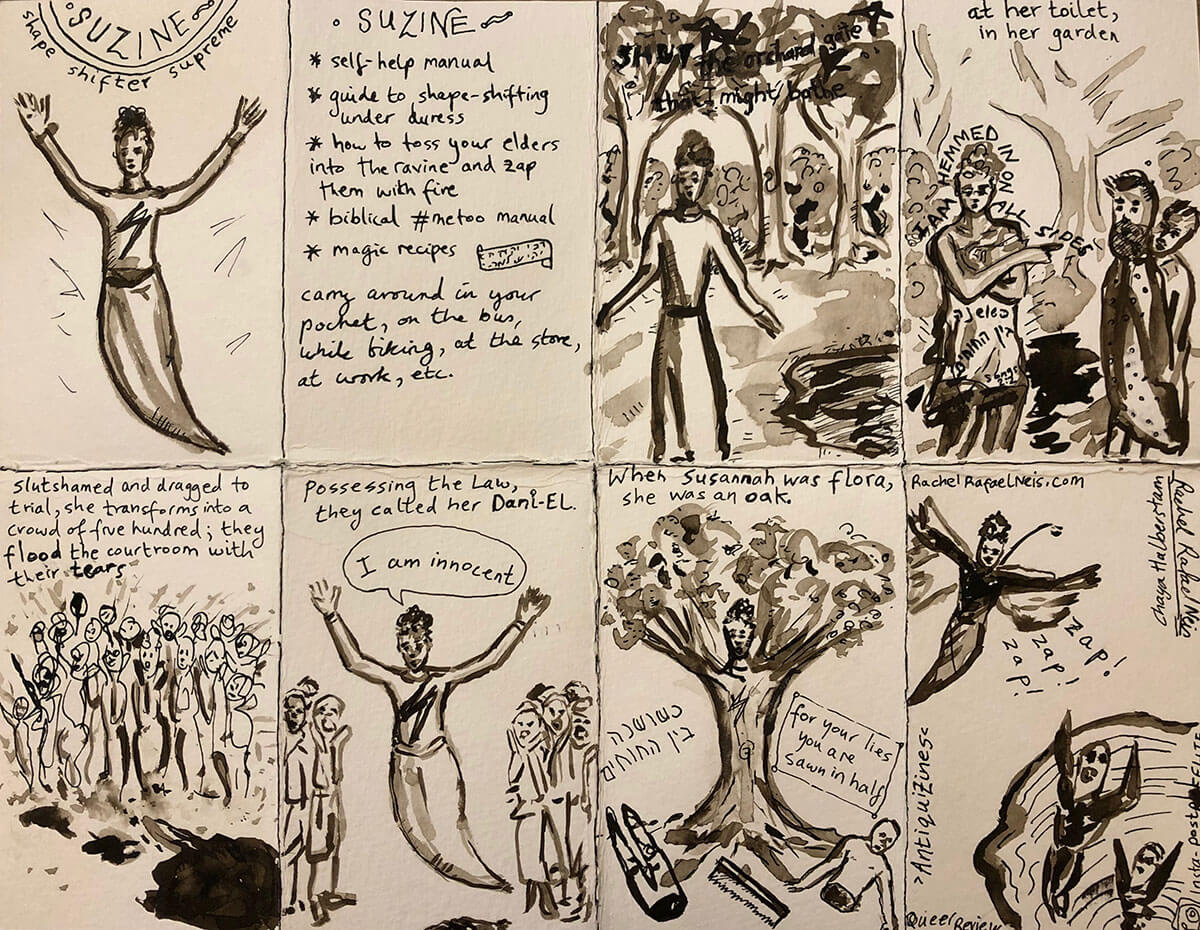 SUZINE
shape shifter supreme
SUZINE
* self-help manual
* guide to shape-shifting
under duress
* how to toss your elders
into the ravine and zap
them with fire
* biblical #metoo manual
* magic recipes
carry around in your
pocket, on the bus,
while biking, at the store,
at work, etc.
SHUT the orchard gate
that I might bathe
at her toilet,
in her garden
I AM HEMMED IN
ON ALL SIDES
בין החוחים
Songs
slutshamed and dragged to
trial, she transforms into a
crowd of five hundred; they
flood the courtroom with
their tears
Possessing the Law,
they called her Dani-EL.
I am innocent
When Susannah was flora,
she was an oak.
כשושנה
בין החוחים
for your lies
you are
sawn in half
RachelRafaelNeis.com
Rachel Rafael Neis
Chaya Halberstam
zap!
zap!
zap!
>AntiquiZines<
QueerReview